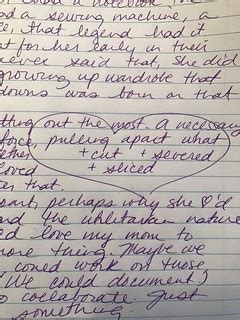 a sewing machine, a
ce, that legend had it
for her early in their
ever said that, she did
growing up wardrobe that
downs was born on that
tting out the most. A necessary
force, pulling apart what
ether + cut + severed
loved + sliced
ter that.
part, perhaps why she
and the utilitarian nature
I'd love my mom to
more thing. Maybe we
could work on those
(We could document)
to collaborate just
something.